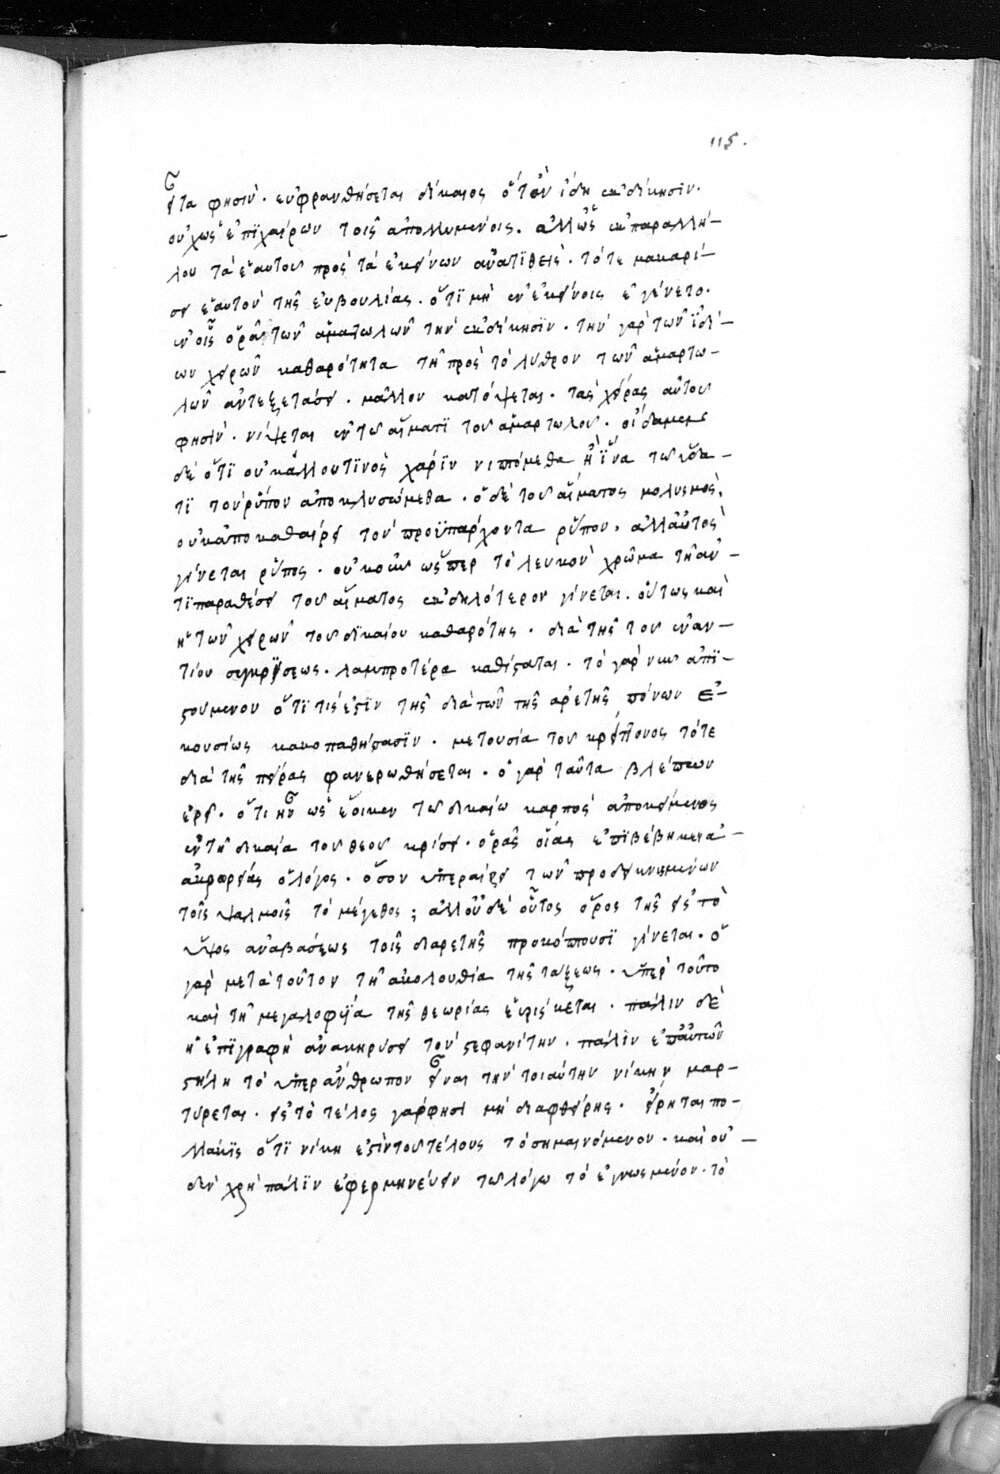 115.
εἶτα φησὶν· εὐφρανθήσεται δίκαιος ὅταν ἴδη ἐκδίκησϊν·
οὐχ ὡς ἐπϊχαίρων τοῖς ἀπολλυμένοις. ἀλλ' ὡς ἐκ παραλλή-
λου τὰ ἑαυτοῦ πρὸς τὰ ἐκείνων ἀνατϊθεὶς. τότε μακαρί-
σει ἑαυτὸν τῆς εὐβουλίας. ὅτϊ μὴ ἐν ἐκείνοις ἐγένετο.
ἐν οἷς ὁρᾷ τῶν ἁματωλῶν τὴν ἐκδίκησϊν. τὴν γὰρ τῶν ἰδί-
ων χειρῶν καθαρότητα τῇ πρὸς τὸ λύθρον τῶν ἁμαρτω-
λῶν ἀντεξετάσει. μᾶλλον κατόψεται. τὰς χεῖρας αὐτοῦ
φησὶν. νίψεται ἐν τῶ αἵματϊ τοῦ ἁμαρτωλοῦ. οἴδαμεν
δὲ ὅτϊ οὐκ ἄλλου τϊνὸς χάρϊν νιπτόμεθα ἢ ἵνα τῶ ὕδα-
τϊ τὸν ῥύπον ἀποκλυσώμεθα. ὁ δὲ τοῦ αἵματος μολυσμὸς,
οὐκ ἀποκαθαίρει τὸν προϋπάρχοντα ῥύπον. ἀλλ' αὐτὸς
γίνεται ῥύπος. οὐκοῦν ὥσπερ τὸ λευκὸν χρῶμα τῇ ἀν-
τϊπαραθέσει τοῦ αἵματος ἐκδηλότερον γίνεται. οὕτως καὶ
ἡ τῶν χειρῶν τοῦ δϊκαίου καθαρότης. διὰ τῆς τοῦ ἐναν-
τίου συγκρίσεως. λαμπροτέρα καθίσταται. τὸ γὰρ νῦν ἀπϊ-
στούμενον ὅτϊ τίς ἐστϊν τῆς διὰ τῶν τῆς ἀρετῆς πόνων ἐ-
κουσίως κακοπαθήσασϊν. μετουσία τοῦ κρείττονος τότε
διὰ τῆς πείρας φανερωθήσεται. ὁ γὰρ ταῦτα βλέπων
ἐρεῖ. ὅτι ἦν ὡς ἔοικεν τῶ δικαίω καρπὸς ἀποκείμενος
ἐν τῇ δικαία τοῦ θεοῦ κρίσει. ὁρᾷς οἵας ἐπϊβέβηκεν
ἀκρωρείας ὁ λόγος. ὅσον ὑπεραίρει τῶν προδεικνυμένων
τοῖς ψαλμοῖς τὸ μέγεθος; ἀλλ' οὐδὲ οὗτος ὅρος τῆς εἰς τὸ
ὕψος ἀναβάσεως τοῖς δι' ἀρετῆς προκόπτουσϊ γίνεται. ὁ
γὰρ μετὰ τοῦτον τῇ ἀκολουθία τῆς τάξεως. ὑπὲρ τοῦτο
καὶ τῇ μεγαλοφυΐα τῆς θεωρίας εὑρίσκεται. πάλιν δὲ
ἡ ἐπϊγραφὴ ἀνακηρύσει τὸν στεφανίτην. πάλϊν ἐπ' αὐτῶν
στήλη τὸ ὑπὲρ ἄνθρωπον εἶναι τὴν τοιαύτην νίκην μαρ-
τύρεται. εἰς τὸ τέλος γάρ φησι μὴ διαφθείρης. εἴρηται πο-
λλάκϊς ὅτϊ νίκη ἐστὶν τοῦ τέλους τὸ σημαινόμενον. καὶ οὐ-
δὲν χρὴ πάλϊν ἐφερμηνεύειν τῶ λόγω τὸ ἐγνωσμένον. τὸ